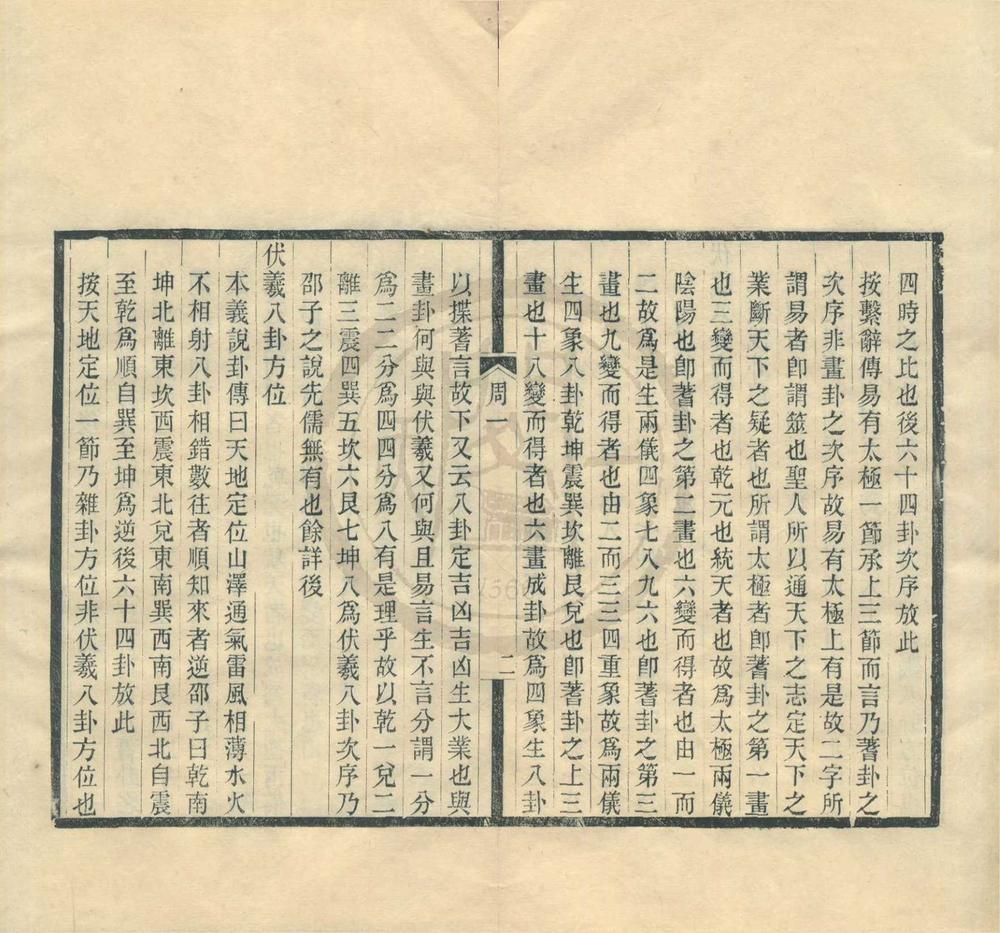 四時之比也後六十四卦次序放此
按繫辭傳易有太極一節承上三節而言乃蓍卦之
次序非畫卦之次序故易有太極上有是故二字所
謂易者卽謂筮也聖人所以通天下之志定天下之
業斷天下之疑者也所謂太極者卽蓍卦之第一畫
也三變而得者也乾元也統天者也故爲太極兩儀
陰陽也卽蓍卦之第二畫也六變而得者也由一而
二故爲是生兩儀四象七八九六也卽蓍卦之第三
畫也九變而得者也由二而三三四重象故爲兩儀
生四象八卦乾坤震巽坎離艮兌也卽蓍卦之上三
畫也十八變而得者也六畫成卦故爲四象生八卦
周一
二
以揲蓍言故下又云八卦定吉凶吉凶生大業也與
畫卦何與與伏羲又何與且易言生不言分謂一分
爲二二分爲四四分爲八有是理乎故以乾一兌二
離三震四巽五坎六艮七坤八爲伏羲八卦次序乃
邵子之說先儒無有也餘詳後
伏羲八卦方位
本義說卦傳曰天地定位山澤通氣雷風相薄水火
不相射八卦相錯數往者順知來者逆邵子曰乾南
坤北離東坎西震東北兌東南巽西南艮西北自震
至乾爲順自巽至坤爲逆後六十四卦放此
按天地定位一節乃雜卦方位非伏羲八卦方位也